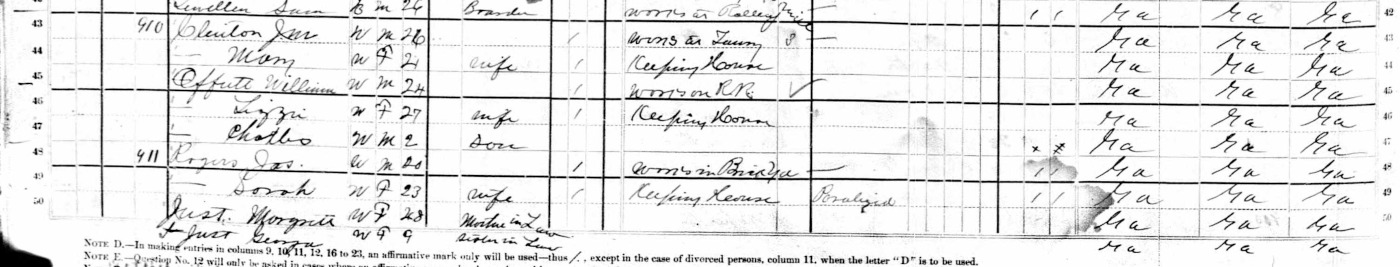 Sam B M 26 Boarder works at Rolling Mill 1 1 Ga Ga Ga 42
910 Clinton Jas W M 26 1 works at 8 — Ga Ga Ga 43
44 — Mary W F 21 wife 1 Keeping House Ga Ga Ga 44
45 Offutt William W M 24 1 works on R.R. ✓ Ga Ga Ga 45
46 — Lizzi W F 27 wife 1 Keeping House Ga Ga Ga 46
47 — W M 2 Son Ga Ga Ga 47
48 911 Rogers Jas. W M 20 works in — 1 1 Ga Ga Ga 48
49 — Sarah W F 23 wife 1 Keeping House Paralized 1 1 Ga Ga Ga 49
50 Just. W F Mother in Law Ga Ga Ga 50
Just W F 9 Sister in Law Ga Ga Ga
NOTE D.—In making entries in columns 9, 10, 11, 12, 16 to 23, an affirmative mark only will be used—thus /, except in the case of divorced persons, column 11, when the letter "D" is to be used.
NOTE E.—Question No. 12 will only be asked in cases where an affirmative